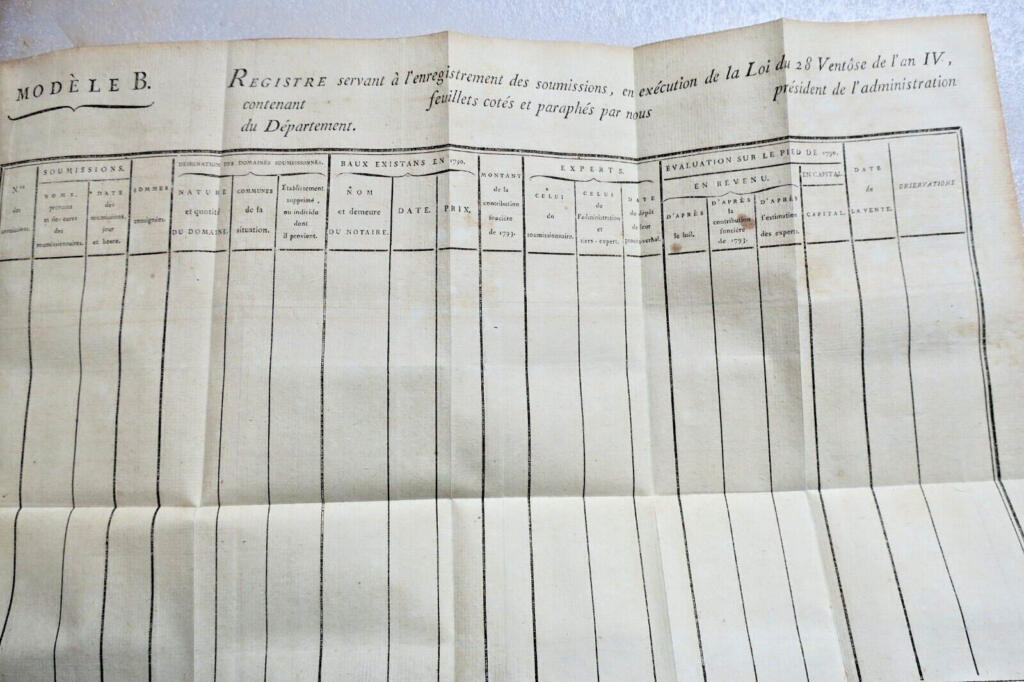 MODÈLE B.
REGISTRE servant à l'enregistrement des soumissions, en exécution de la Loi du 28 Ventôse de l'an IV,
contenant feuillets cotés et paraphés par nous président de l'administration
du Département.
Nos
des
soumissions.
SOUMISSIONS.
NOMS,
prénoms
et demeures
des
soumissionnaires.
DATE
des
soumissions,
jour
et heure.
SOMMES
consignées.
DÉSIGNATION DES DOMAINES SOUMISSIONNÉS.
NATURE
et quotité
DU DOMAINE.
COMMUNES
de la
situation.
Établissement
supprimé,
ou individu
dont
il provient.
BAUX EXISTANS EN 1790.
NOM
et demeure
DU NOTAIRE.
DATE.
PRIX.
MONTANT
de la
contribution
foncière
de 1793.
EXPERTS.
CELUI
du
soumissionnaire.
CELUI
de
l'administration
et
tiers-expert.
DATE
du dépôt
de leur
procès-verbal.
ÉVALUATION SUR LE PIED DE 1790.
EN REVENU.
D'APRÈS
le bail.
D'APRÈS
la
contribution
foncière
de 1793.
D'APRÈS
l'estimation
des experts.
EN CAPITAL.
CAPITAL.
DATE
de
LA VENTE.
OBSERVATIONS.